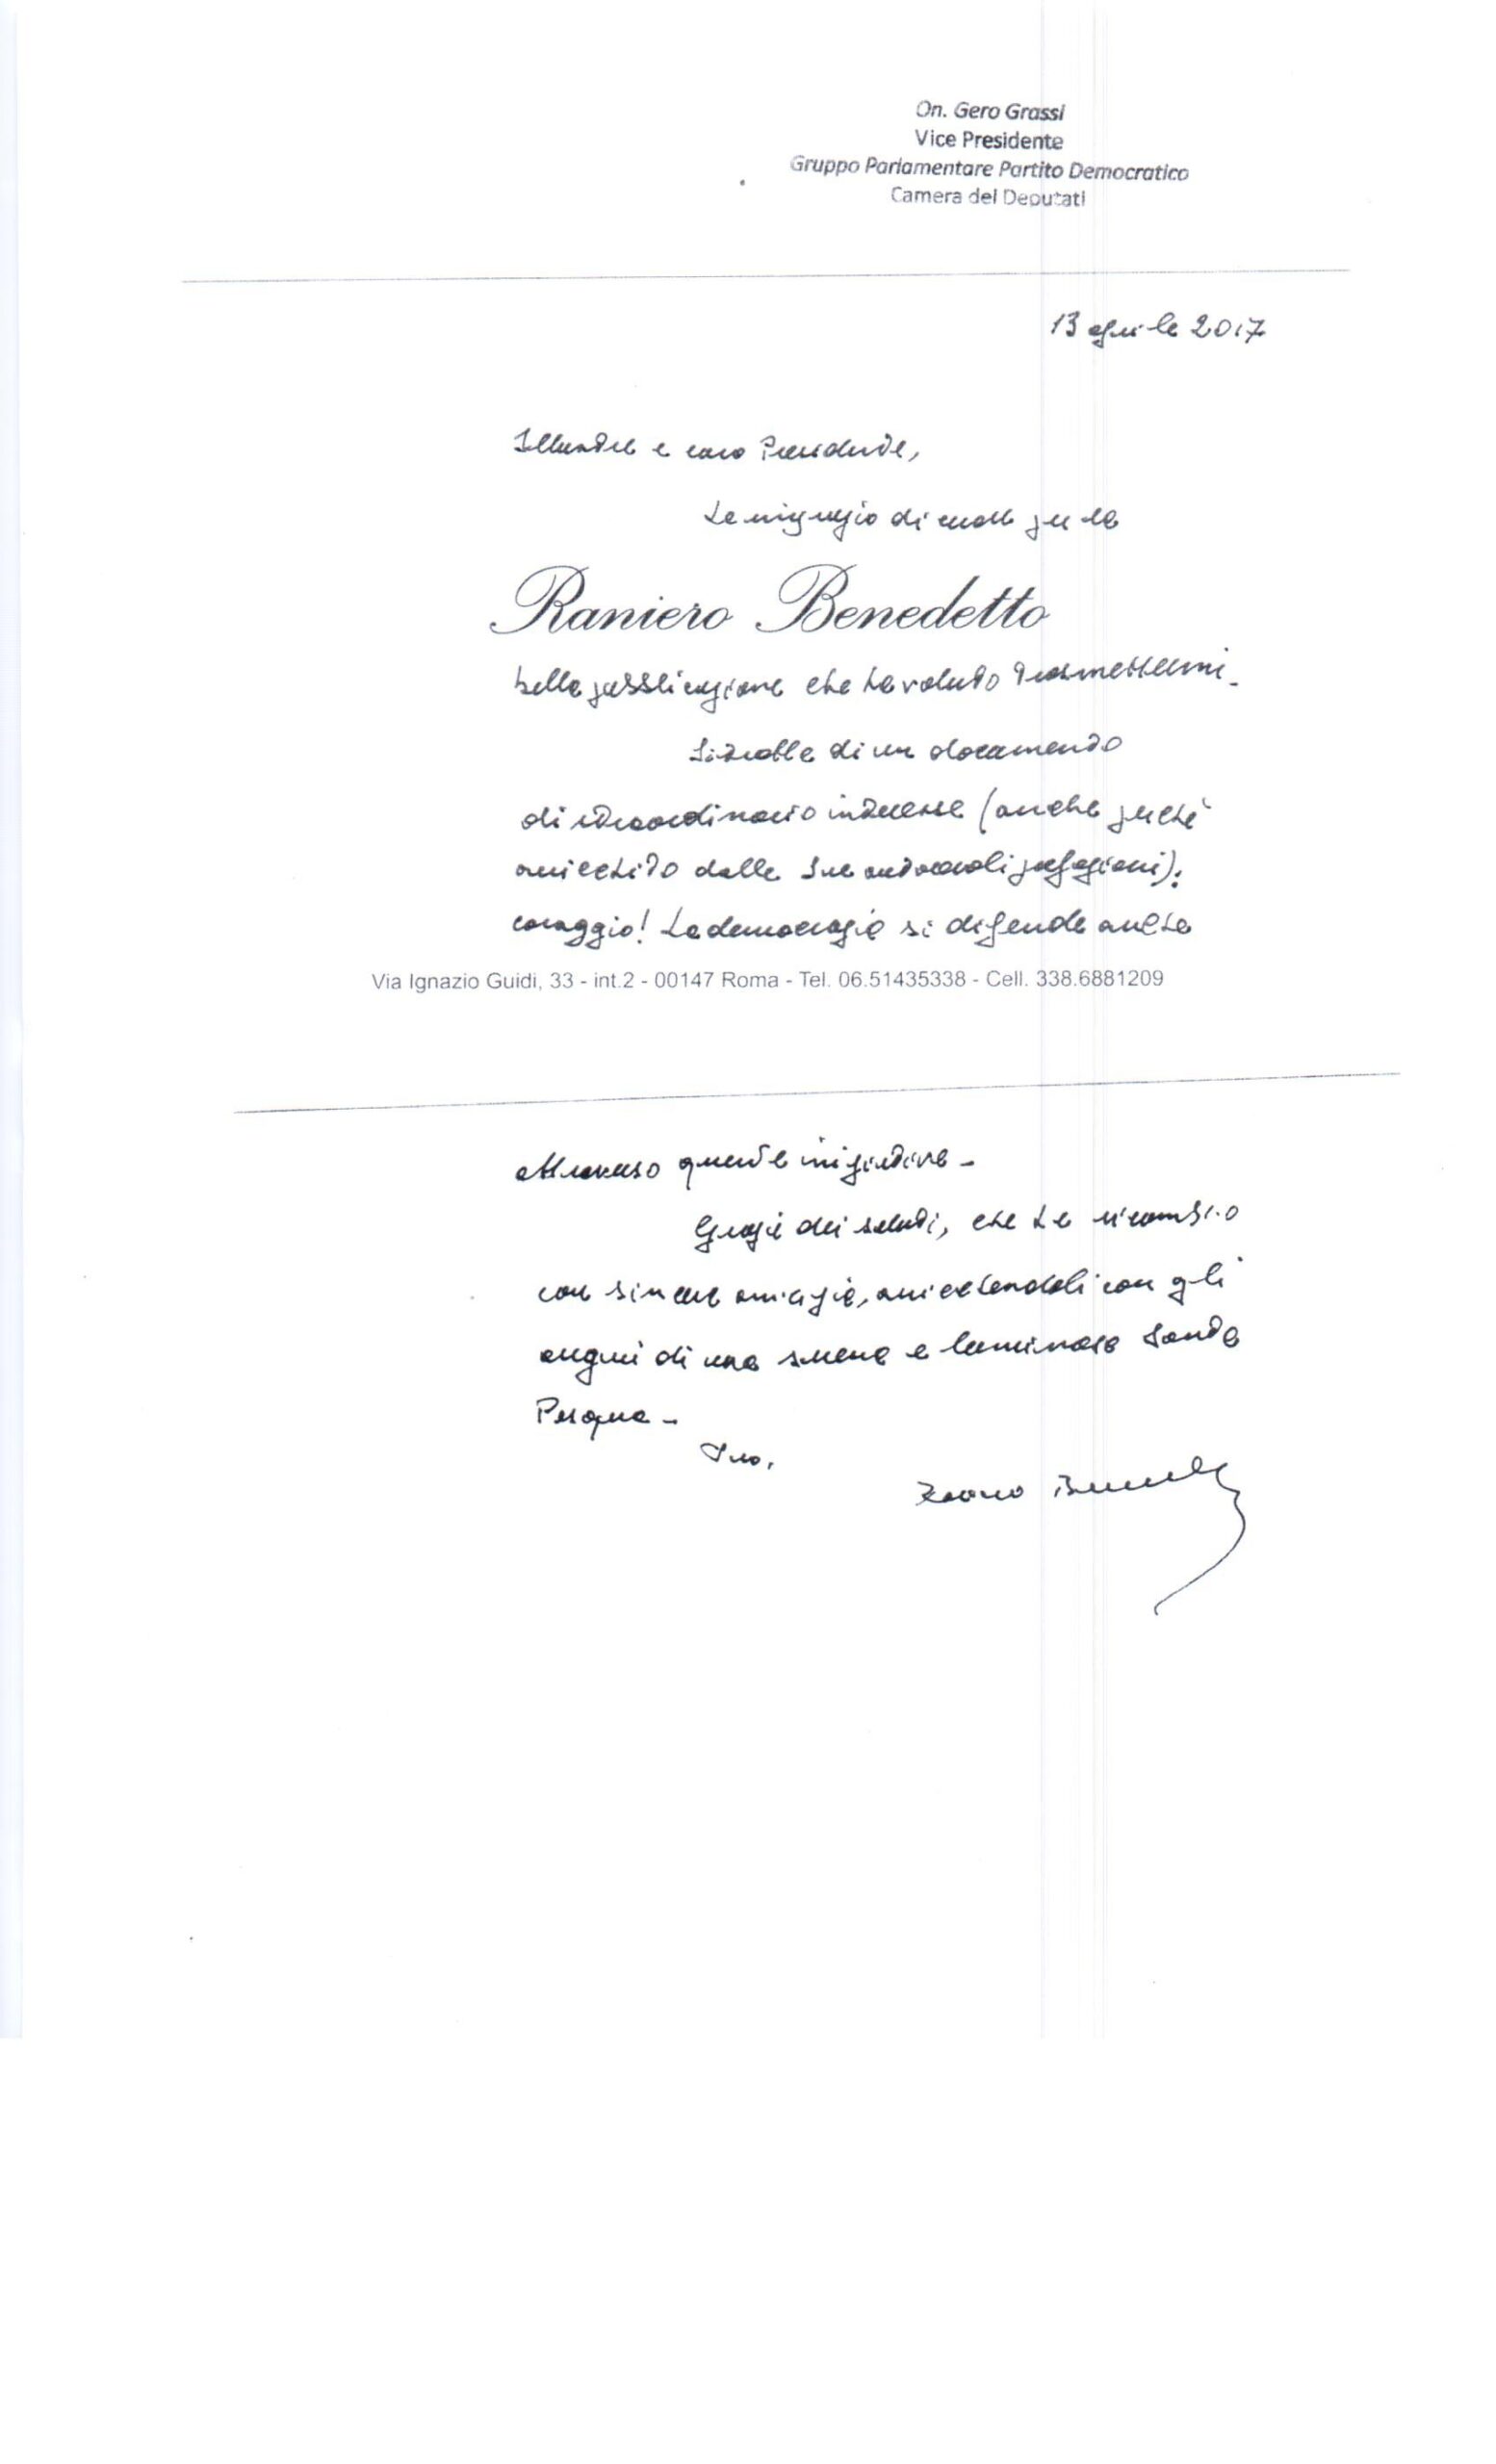 On. Gero Grassi
Vice Presidente
Gruppo Parlamentare Partito Democratico
Camera dei Deputati
13 aprile 2017
Illustre e caro Presidente,
La ringrazio di cuore per la
Raniero Benedetto
bella pubblicazione che ha voluto trasmettermi -
Si tratta di un documento
di straordinario interesse (anche perché
arricchito dalle Sue autorevoli prefazioni):
coraggio! La democrazia si difende anche
Via Ignazio Guidi, 33 - int.2 - 00147 Roma - Tel. 06.51435338 - Cell. 338.6881209
attraverso queste iniziative -
Grazie dei saluti, che Le ricambio
con sincera amicizia, arricchendoli con gli
auguri di una serena e luminosa Santa
Pasqua -
Suo,